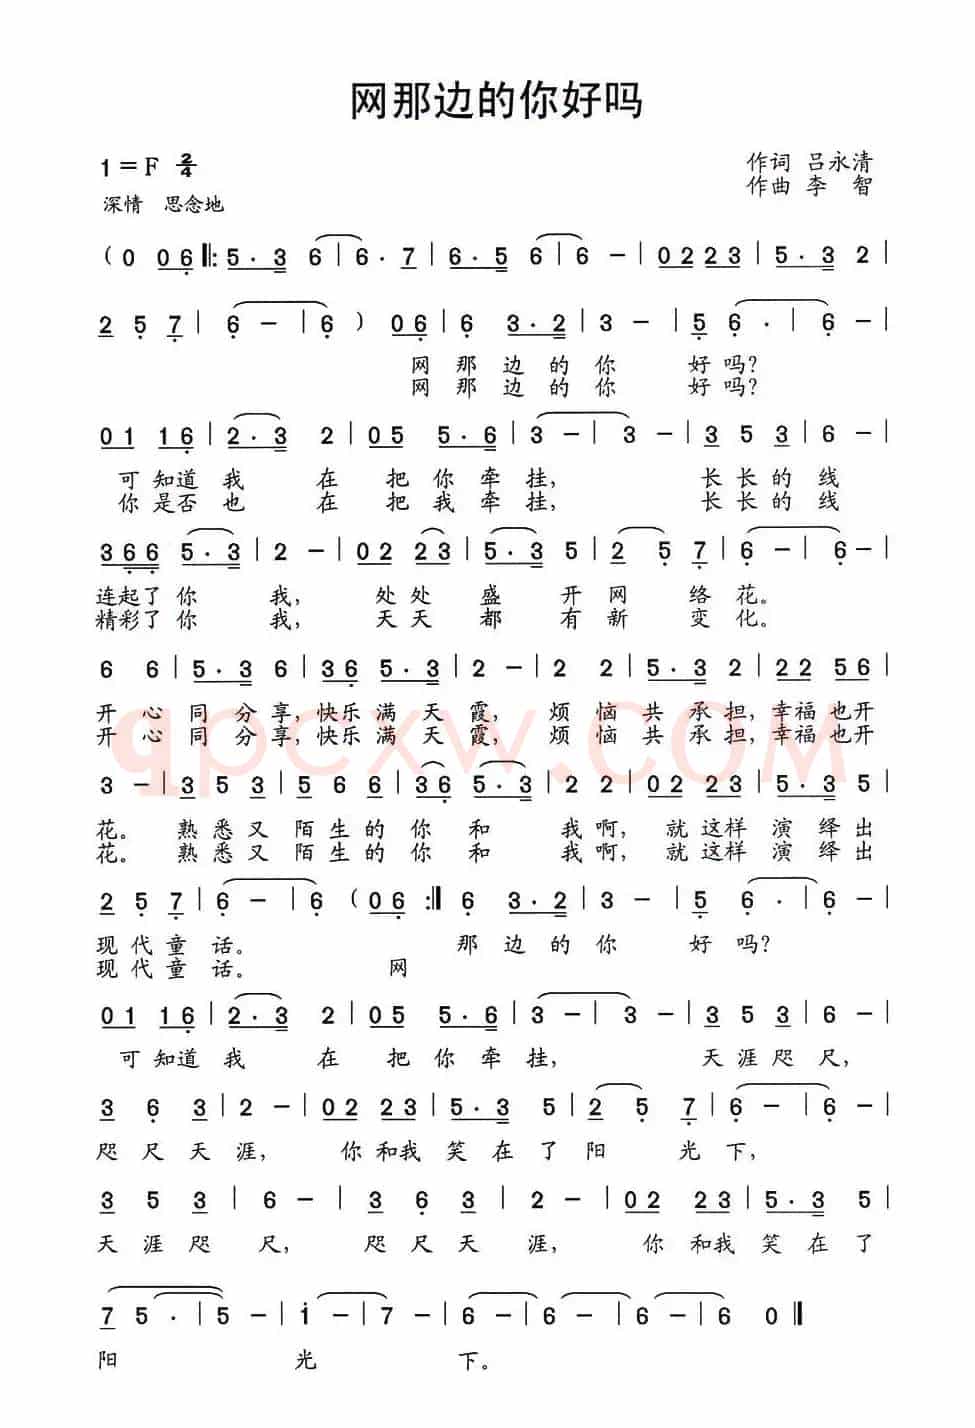 网那边的你好吗
1=F 2/4
作词 吕永清
作曲 李 智
深情 思念地
( 0 0 6 ‖: 5 · 3 6 | 6 · 7 | 6 · 5 6 | 6 - | 0 2 2 3 | 5 · 3 2 |
2 5 7 | 6 - | 6 ) 0 6 | 6 3 · 2 | 3 - | 5 6 · | 6 - |
网 那 边 的 你 好 吗?
网 那 边 的 你 好 吗?
0 1 1 6 | 2 · 3 2 | 0 5 5 · 6 | 3 - | 3 - | 3 5 3 | 6 - |
可 知道 我 在 把 你 牵 挂, 长 长 的 线
你 是否 也 在 把 我 牵 挂, 长 长 的 线
3 6 6 5 · 3 | 2 - | 0 2 2 3 | 5 · 3 5 | 2 5 7 | 6 - | 6 - |
连起了 你 我, 处 处 盛 开 网 络 花。
精彩了 你 我, 天 天 都 有 新 变 化。
6 6 | 5 · 3 6 | 3 6 5 · 3 | 2 - | 2 2 | 5 · 3 2 | 2 2 5 6 |
开 心 同 分 享, 快乐 满 天 霞, 烦 恼 共 承 担, 幸福 也开
开 心 同 分 享, 快乐 满 天 霞, 烦 恼 共 承 担, 幸福 也开
3 - | 3 5 3 | 5 6 6 | 3 6 5 · 3 | 2 2 | 0 2 2 3 | 5 · 3 5 |
花。 熟 悉 又 陌 生 的 你 和 我 啊, 就 这样 演 绎 出
花。 熟 悉 又 陌 生 的 你 和 我 啊, 就 这样 演 绎 出
2 5 7 | 6 - | 6 ( 0 6 :‖ 6 3 · 2 | 3 - | 5 6 · | 6 - |
现 代 童 话。 那 边 的 你 好 吗?
现 代 童 话。 网
0 1 1 6 | 2 · 3 2 | 0 5 5 · 6 | 3 - | 3 - | 3 5 3 | 6 - |
可 知道 我 在 把 你 牵 挂, 天 涯 咫 尺,
3 6 3 | 2 - | 0 2 2 3 | 5 · 3 5 | 2 5 7 | 6 - | 6 - |
咫 尺 天 涯, 你 和我 笑 在 了 阳 光 下,
3 5 3 | 6 - | 3 6 3 | 2 - | 0 2 2 3 | 5 · 3 5 |
天 涯 咫 尺, 咫 尺 天 涯, 你 和我 笑 在 了
7 5 · | 5 - | i - | 7 - | 6 - | 6 - | 6 - | 6 0 ‖
阳 光 下。
qpcxw.COM